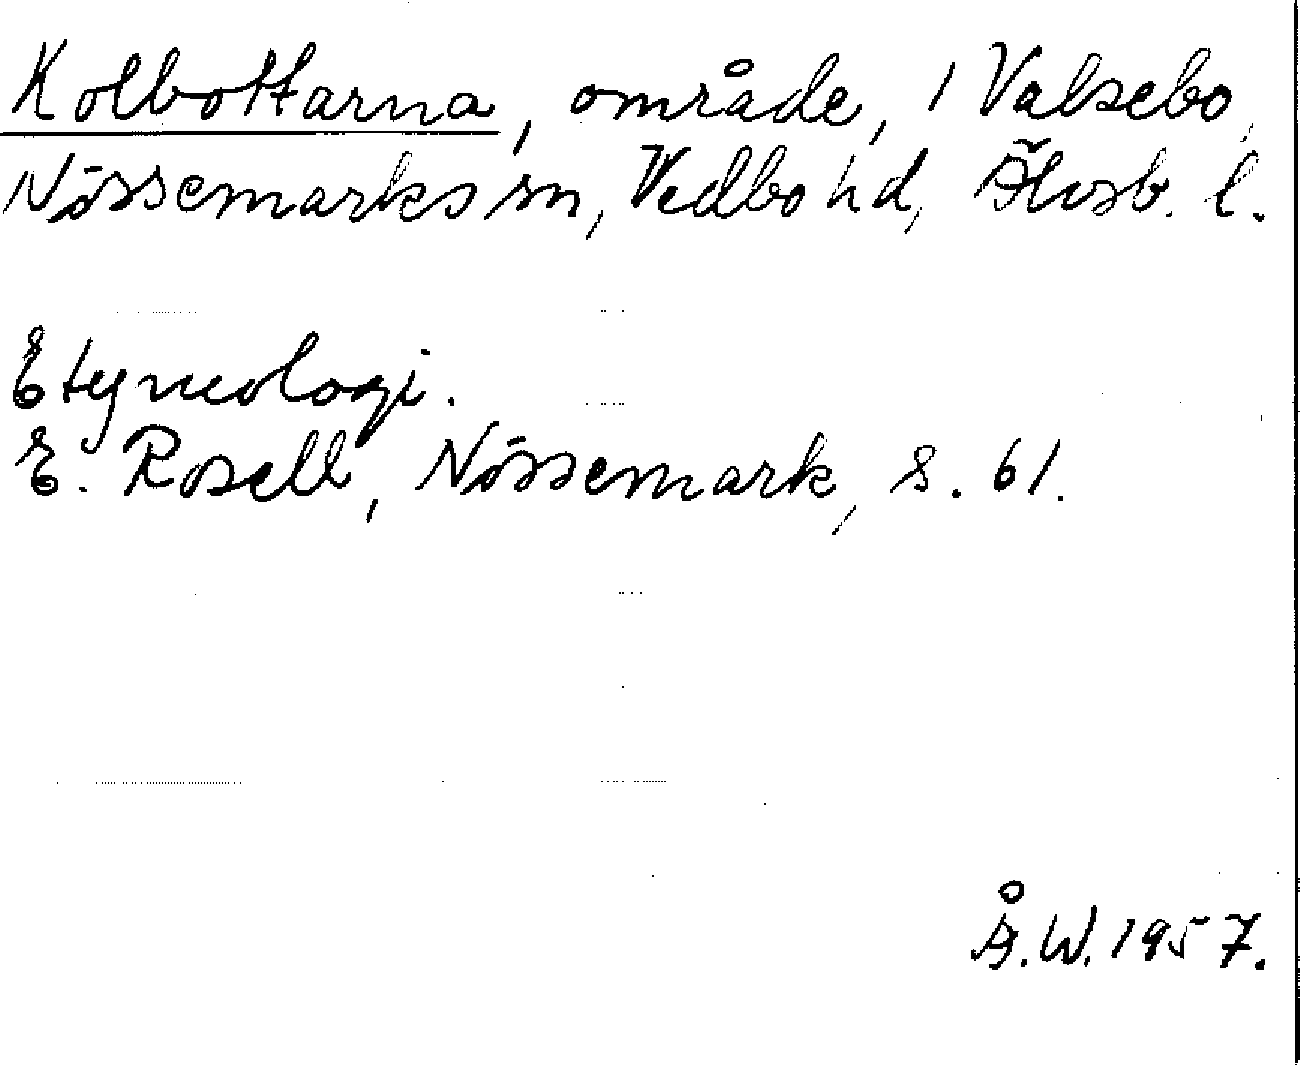 Kolbottarna, område, i Valsebo,
Nössemarks sn, Vedbo hd, Älvsb. l.
Etymologi.
E. Rosell, Nössemark, s. 61.
Å.W. 1957.